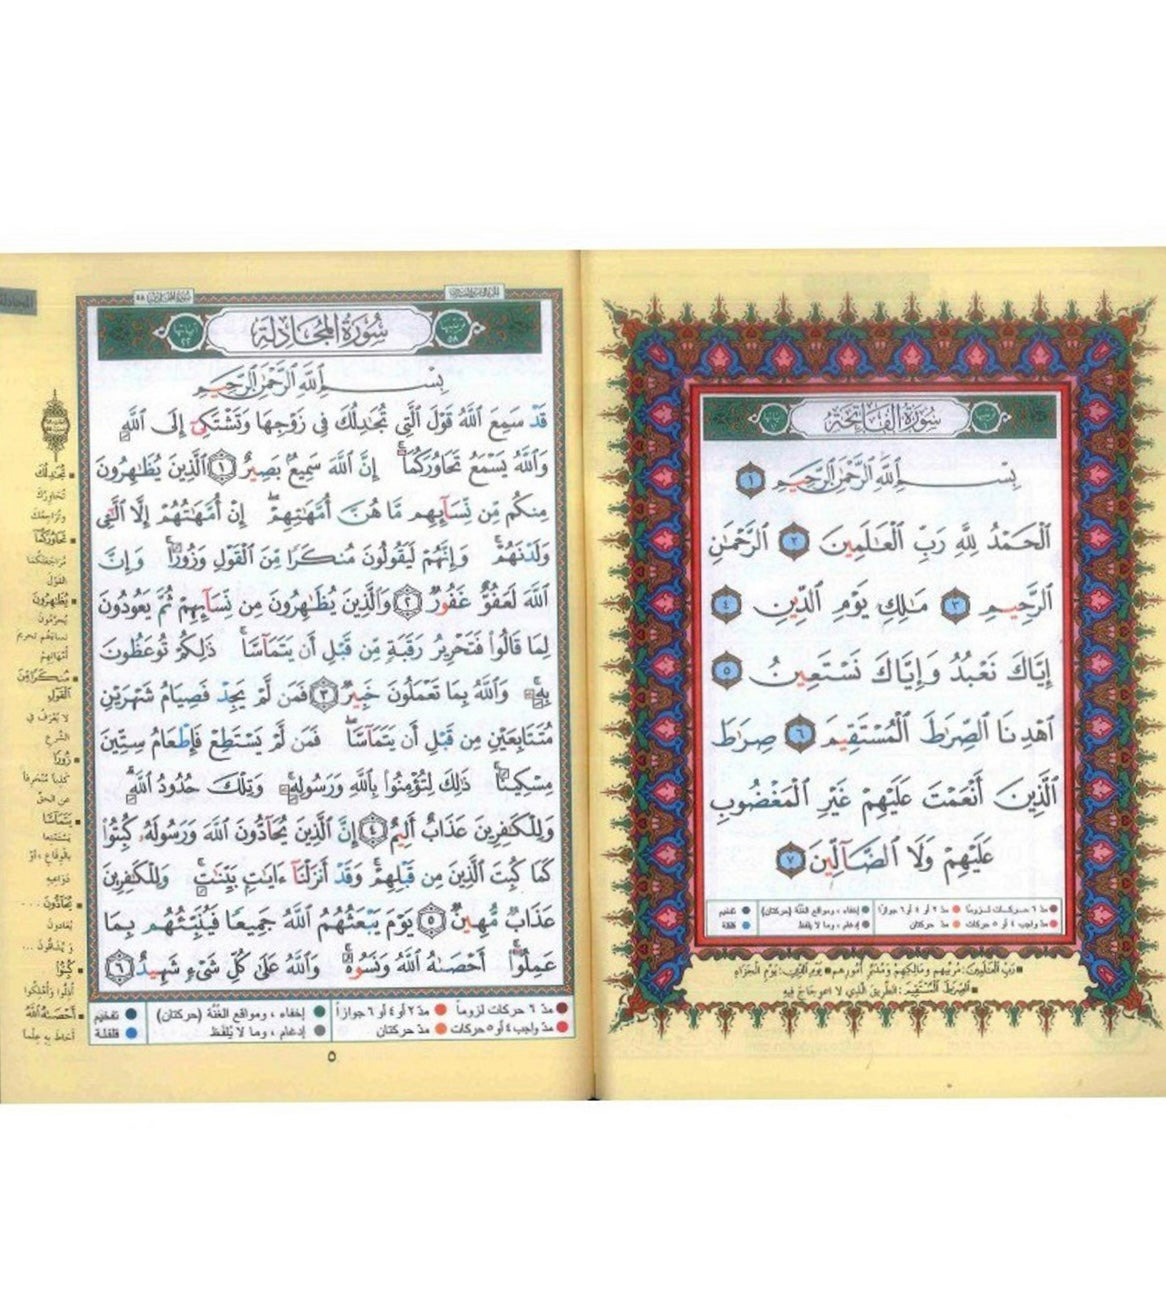 سُورَةُ الْفَاتِحَةِ
بِسْمِ ٱللَّهِ ٱلرَّحْمَٰنِ ٱلرَّحِيمِ ١
ٱلْحَمْدُ لِلَّهِ رَبِّ ٱلْعَٰلَمِينَ ٢ ٱلرَّحْمَٰنِ
ٱلرَّحِيمِ ٣ مَٰلِكِ يَوْمِ ٱلدِّينِ ٤
إِيَّاكَ نَعْبُدُ وَإِيَّاكَ نَسْتَعِينُ ٥
ٱهْدِنَا ٱلصِّرَٰطَ ٱلْمُسْتَقِيمَ ٦ صِرَٰطَ
ٱلَّذِينَ أَنْعَمْتَ عَلَيْهِمْ غَيْرِ ٱلْمَغْضُوبِ
عَلَيْهِمْ وَلَا ٱلضَّآلِّينَ ٧
مدّ ٦ حركات لزوماً مدّ ٢ أو ٤ أو ٦ جوازاً إخفاء، ومواقع الغنّة (حركتان) تفخيم
مدّ واجب ٤ أو ٥ حركات مدّ حركتان إدغام، وما لا يُلفَظ قلقلة
رَبِّ الْعَالَمِينَ: مُرَبِّيهِم وَمَالِكِهِمْ وَمُدَبِّرِ أُمُورِهِم يَوْمِ الدِّينِ: يَوْمِ الْجَزَاءِ
الصِّرَاطَ الْمُسْتَقِيمَ: الطَّرِيقَ الَّذِي لا اعوِجَاجَ فِيهِ
سُورَةُ الْمُجَادِلَةِ
بِسْمِ ٱللَّهِ ٱلرَّحْمَٰنِ ٱلرَّحِيمِ
قَدْ سَمِعَ ٱللَّهُ قَوْلَ ٱلَّتِى تُجَٰدِلُكَ فِى زَوْجِهَا وَتَشْتَكِىٓ إِلَى ٱللَّهِ
وَٱللَّهُ يَسْمَعُ تَحَاوُرَكُمَآ ۚ إِنَّ ٱللَّهَ سَمِيعٌۢ بَصِيرٌ ١ ٱلَّذِينَ يُظَٰهِرُونَ
مِنكُم مِّن نِّسَآئِهِم مَّا هُنَّ أُمَّهَٰتِهِمْ ۖ إِنْ أُمَّهَٰتُهُمْ إِلَّا ٱلَّٰٓـِٔى
وَلَدْنَهُمْ ۚ وَإِنَّهُمْ لَيَقُولُونَ مُنكَرًا مِّنَ ٱلْقَوْلِ وَزُورًا ۚ وَإِنَّ
ٱللَّهَ لَعَفُوٌّ غَفُورٌ ٢ وَٱلَّذِينَ يُظَٰهِرُونَ مِن نِّسَآئِهِمْ ثُمَّ يَعُودُونَ
لِمَا قَالُوا۟ فَتَحْرِيرُ رَقَبَةٍ مِّن قَبْلِ أَن يَتَمَآسَّا ۚ ذَٰلِكُمْ تُوعَظُونَ
بِهِۦ ۚ وَٱللَّهُ بِمَا تَعْمَلُونَ خَبِيرٌ ٣ فَمَن لَّمْ يَجِدْ فَصِيَامُ شَهْرَيْنِ
مُتَتَابِعَيْنِ مِن قَبْلِ أَن يَتَمَآسَّا ۖ فَمَن لَّمْ يَسْتَطِعْ فَإِطْعَامُ سِتِّينَ
مِسْكِينًا ۚ ذَٰلِكَ لِتُؤْمِنُوا۟ بِٱللَّهِ وَرَسُولِهِۦ ۚ وَتِلْكَ حُدُودُ ٱللَّهِ ۗ
وَلِلْكَٰفِرِينَ عَذَابٌ أَلِيمٌ ٤ إِنَّ ٱلَّذِينَ يُحَآدُّونَ ٱللَّهَ وَرَسُولَهُۥ كُبِتُوا۟
كَمَا كُبِتَ ٱلَّذِينَ مِن قَبْلِهِمْ ۚ وَقَدْ أَنزَلْنَآ ءَايَٰتٍۭ بَيِّنَٰتٍ ۚ وَلِلْكَٰفِرِينَ
عَذَابٌ مُّهِينٌ ٥ يَوْمَ يَبْعَثُهُمُ ٱللَّهُ جَمِيعًا فَيُنَبِّئُهُم بِمَا
عَمِلُوٓا۟ ۚ أَحْصَىٰهُ ٱللَّهُ وَنَسُوهُ ۚ وَٱللَّهُ عَلَىٰ كُلِّ شَىْءٍ شَهِيدٌ ٦
مدّ ٦ حركات لزوماً مدّ ٢ أو ٤ أو ٦ جوازاً إخفاء، ومواقع الغنّة (حركتان) تفخيم
مدّ واجب ٤ أو ٥ حركات مدّ حركتان إدغام، وما لا يُلفَظ قلقلة
٥
تُجَادِلُكَ
تُحَاوِرُكَ
وتُرَاجِعُكَ
تَحَاوُرَكُمَا
مُرَاجَعَتَكُمَا
القَوْلَ
يُظَاهِرُونَ
يُحَرِّمُونَ
نساءَهُم تحريمَ
أُمَّهاتِهِمْ
مُنكَرًا مِّنَ
الْقَوْلِ
لا يُعْرَفُ في
الشَّرعِ
زُورًا
كَذِباً مُنْحَرِفاً
عن الحقِّ
يَتَمَاسَّا
يَسْتَمْتِعا
بالوِقَاعِ، أَوْ
دَوَاعِيهِ
يُحَادُّونَ...
يُعَادونَ
وَ يُشَاقُّونَ...
كُبِتُوا
أُذِلُّوا وأُهْلِكُوا
أَحْصَاهُ اللهُ
أَحَاطَ بِهِ عِلْماً